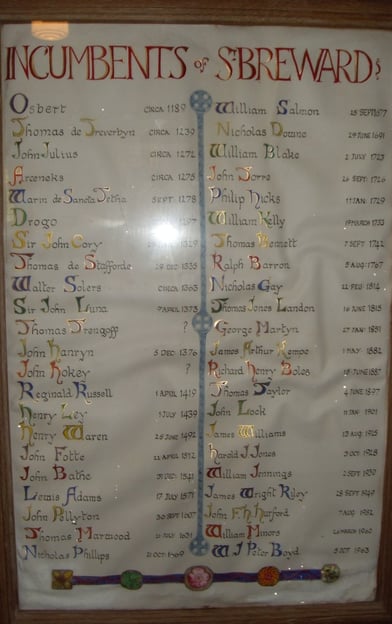 INCUMBENTS of St BREWARDS
Osbert CIRCA 1189
Thomas de Treverbyn CIRCA 1239
John Julius CIRCA 1272
Arceneks CIRCA 1275
Warin de Sancta Tetha SEPT 1278
Drogo 1297
Sir John Cory 1329
Thomas de Stafforde DEC 1335
Walter Solers CIRCA 1363
Sir John Lluna APRIL 1373
Thomas Trengoff ?
John Hanryn 5 DEC 1376
John Hokey ?
Reginald Russell 1 APRIL 1419
Henry Ley JULY 1439
Henry Waren 26 JUNE 1492
John Fotte APRIL 1512
John Bathe DEC 1541
Lewis Adams 17 JULY 1571
John Pollyton 30 SEPT 1607
Thomas Marwood JULY 1631
Nicholas Phillips OCT 1669
William Salmon 25 SEPT 1677
Nicholas Downe 29 JUNE 1691
William Blake 2 JULY 1723
John Torre 26 SEPT 1726
Philip Hicks 11 JAN 1729
William Kelly 19 MARCH 1733
Thomas Bennett 7 SEPT 1742
Ralph Barron 5 AUG 1767
Nicholas Gay 22 DEC 1812
Thomas Jones Landon 16 JUNE 1815
George Martyn 27 JAN 1851
James Arthur Kempe 1 MAY 1882
Richard Henry Boles 18 JUNE 1887
Thomas Saylor 4 JUNE 1897
John Lock 11 JAN 1901
James Williams 13 AUG 1925
Harold J. Jones 5 OCT 1928
William Jennings 2 SEPT 1939
James Wright Riley 28 SEPT 1949
John F. H. Hurford 7 AUG 1952
William Minors MARCH 1960
W J Peter Boyd 5 OCT 1963